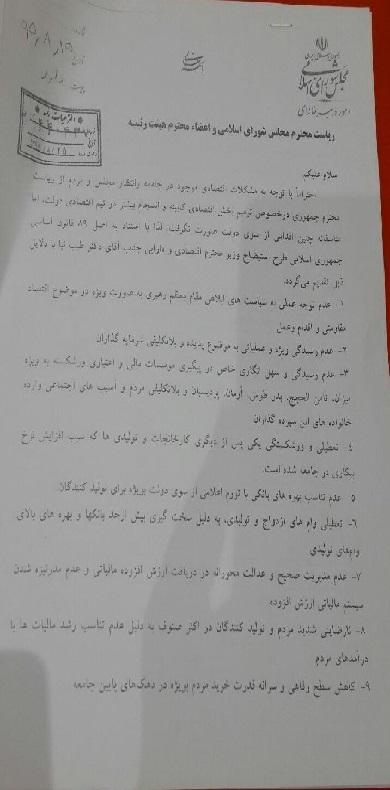 مجلس شورای اسلامی
ریاست محترم مجلس شورای اسلامی و اعضاء محترم هیئت رئیسه
سلام علیکم
احتراماً با توجه به مشکلات اقتصادی موجود در جامعه وانتظار مجلس و مردم از ریاست
محترم جمهوری درخصوص ترمیم بخش اقتصادی کابینه و انسجام بیشتر در تیم اقتصادی دولت، اما
متاسفانه چنین اقدامی از سوی دولت صورت نگرفت لذا با استناد به اصل ۸۹ قانون اساسی
جمهوری اسلامی طرح استیضاح وزیر محترم اقتصادی و دارایی جناب آقای دکتر طیب نیا با دلایل
تقدیم می‌گردد.
۱- عدم توجه عملی به سیاست های ابلاغی مقام معظم رهبری به صورت ویژه در موضوع اقتصاد
مقاومتی و اقدام وعمل
۲- عدم رسیدگی ویژه و عملیاتی به موضوع پدیده و بلاتکلیفی سرمایه گذاران
۳- عدم رسیدگی و سهل انگاری خاص در پیگیری موسسات مالی و اعتباری ورشکسته به ویژه
میزان، ثامن الحجج، بدر طوس، آرمان، پردیسبان و بلاتکلیفی مردم و آسیب های اجتماعی وارده
خانواده های این سپرده گذاران
۴- تعطیلی و ورشکستگی یکی پس از دیگری کارخانجات و تولیدی ها که سبب افزایش نرخ
بیکاری در جامعه شده است.
۵- عدم تناسب بهره های بانکی با تورم اعلامی از سوی دولت بویژه برای تولید کنندگان
۶- تعطیلی وام های ازدواج و تولیدی، به دلیل سخت گیری بیش ازحد بانکها و بهره های بالای
وام‌های تولیدی
۷- عدم مدیریت صحیح و عدالت محورانه در دریافت ارزش افزوده مالیاتی و عدم مدرنیزه شدن
سیستم مالیاتی ارزش افزوده
۸- نارضایتی شدید مردم و تولید کنندگان در اکثر صنوف به دلیل عدم تناسب رشد مالیات ها با
درآمدهای مردم
۹- کاهش سطح رفاهی و سرانه قدرت خرید مردم بویژه در دهک‌های پایین جامعه